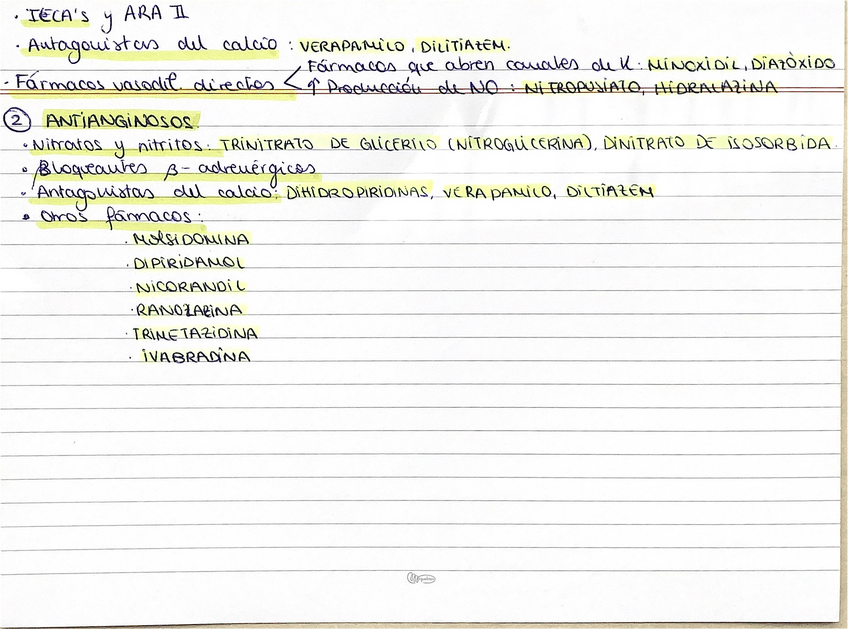 · IECA's y ARA II
· Antagonistas del calcio : VERAPAMILO, DILITIAZEM.
Fármacos que abren canales de K : MINOXIDIL, DIAZÓXIDO
· Fármacos vasodil. directos <
↑ Producción de NO : NITROPUSIATO, HIDRALAZINA
② ANTIANGINOSOS.
· Nitratos y nitritos : TRINITRATO DE GLICERILO (NITROGLICERINA), DINITRATO DE ISOSORBIDA.
· Bloqueantes β-adrenérgicos
· Antagonistas del calcio: DIHIDROPIRIDINAS, VERAPAMILO, DILTIAZEM
· Otros fármacos :
· MOLSIDOMINA
· DIPIRIDAMOL
· NICORANDIL
· RANOLAZINA
· TRIMETAZIDINA
· IVABRADINA